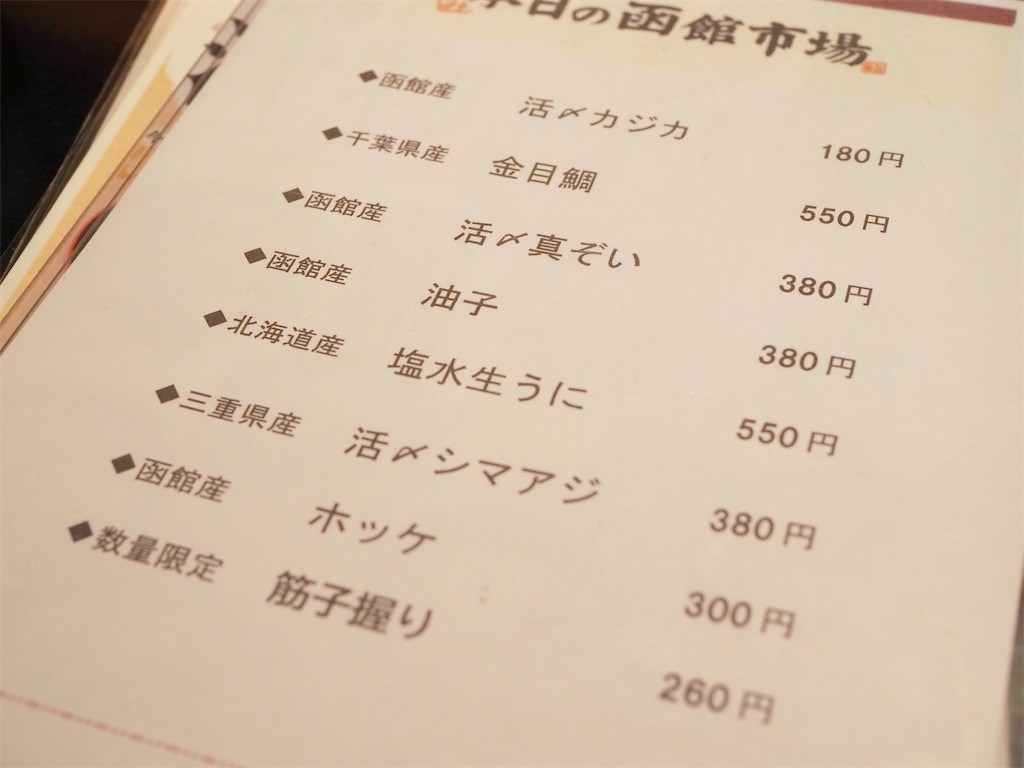 本日の函館市場
◆函館産 活〆カジカ 180円
◆千葉県産 金目鯛 550円
◆函館産 活〆真ぞい 380円
◆函館産 油子 380円
◆北海道産 塩水生うに 550円
◆三重県産 活〆シマアジ 380円
◆函館産 ホッケ 300円
◆数量限定 筋子握り 260円